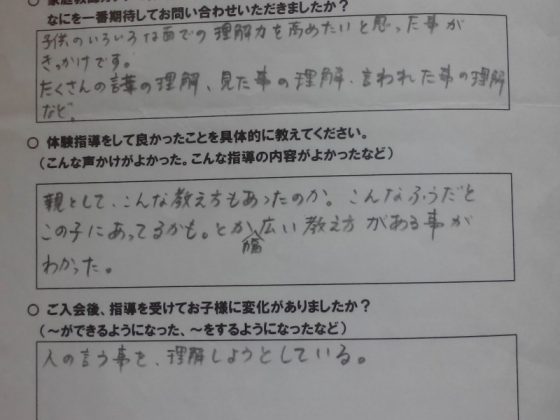 なにを一番期待してお問い合わせいただきましたか？
子供のいろいろな面での理解力を高めたいと思った事が
きっかけです。
たくさんの言葉の理解、見た事の理解、言われた事の理解
など。
○ 体験指導をして良かったことを具体的に教えてください。
（こんな声かけがよかった。こんな指導の内容がよかったなど）
親として、こんな教え方もあったのか。こんなふうだと
この子にあってるかも。とか広い教え方がある事が
わかった。
○ ご入会後、指導を受けてお子様に変化がありましたか？
（～ができるようになった、～をするようになったなど）
人の言う事を、理解しようとしている。